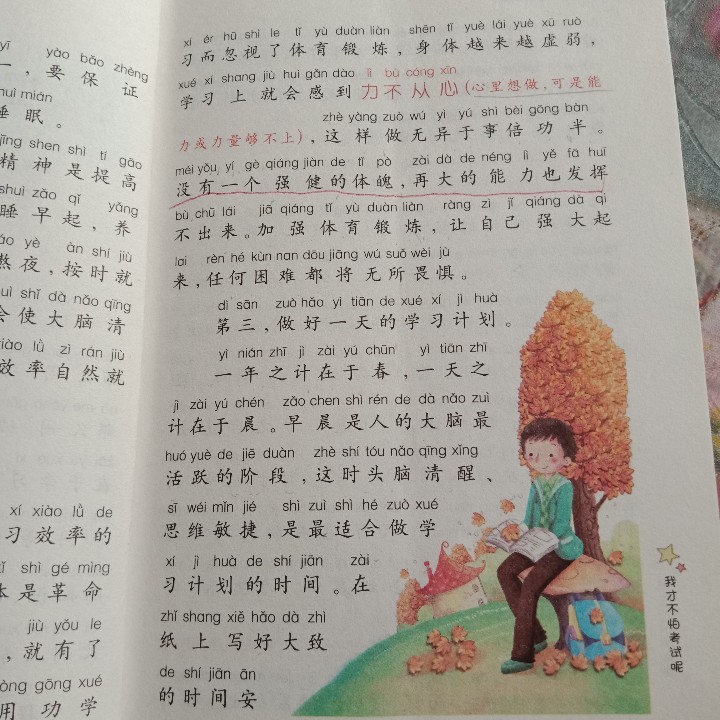 yī yào bǎo zhèng
一，要保证
shuì mián
睡眠。
jīng shen shì tí gāo
精神是提高
shuì zǎo qǐ yǎng
睡早起，养
áo yè àn shí jiù
熬夜，按时就
huì shǐ dà nǎo qīng
会使大脑清
xiào lǜ zì rán jiù
效率自然就
xí xiào lǜ de
习效率的
tǐ shì gé mìng
体是革命
jiù yǒu le
，就有了
yòng gōng xué
用功学
xí ér hū shì le tǐ yù duàn liàn shēn tǐ yuè lái yuè xū ruò
习而忽视了体育锻炼，身体越来越虚弱，
xué xí shang jiù huì gǎn dào lì bù cóng xīn
学习上就会感到力不从心(心里想做，可是能
zhè yàng zuò wú yì yú shì bèi gōng bàn
力或力量够不上)，这样做无异于事倍功半。
méi yǒu yí gè qiáng jiàn de tǐ pò zài dà de néng lì yě fā huī
没有一个强健的体魄，再大的能力也发挥
bù chū lái jiā qiáng tǐ yù duàn liàn ràng zì jǐ qiáng dà qǐ
不出来。加强体育锻炼，让自己强大起
lai rèn hé kùn nan dōu jiāng wú suǒ wèi jù
来，任何困难都将无所畏惧。
dì sān zuò hǎo yì tiān de xué xí jì huà
第三，做好一天的学习计划。
yì nián zhī jì zài yú chūn yì tiān zhī
一年之计在于春，一天之
jì zài yú chén zǎo chen shì rén de dà nǎo zuì
计在于晨。早晨是人的大脑最
huó yuè de jiē duàn zhè shí tóu nǎo qīng xǐng
活跃的阶段，这时头脑清醒、
sī wéi mǐn jié shì zuì shì hé zuò xué
思维敏捷，是最适合做学
xí jì huà de shí jiān zài
习计划的时间。在
zhǐ shang xiě hǎo dà zhì
纸上写好大致
de shí jiān ān
的时间安
我才不怕考试呢